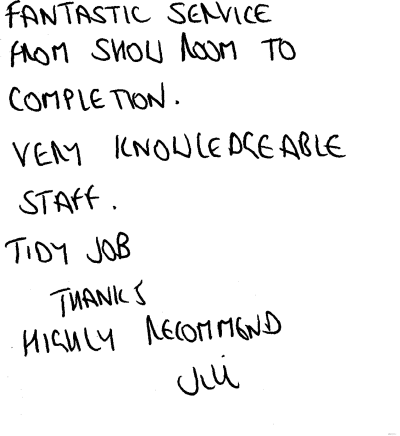 FANTASTIC SERVICE
FROM SHOW ROOM TO
COMPLETION.
VERY KNOWLEDGEABLE
STAFF.
TIDY JOB
THANKS
HIGHLY RECOMMEND
Jill